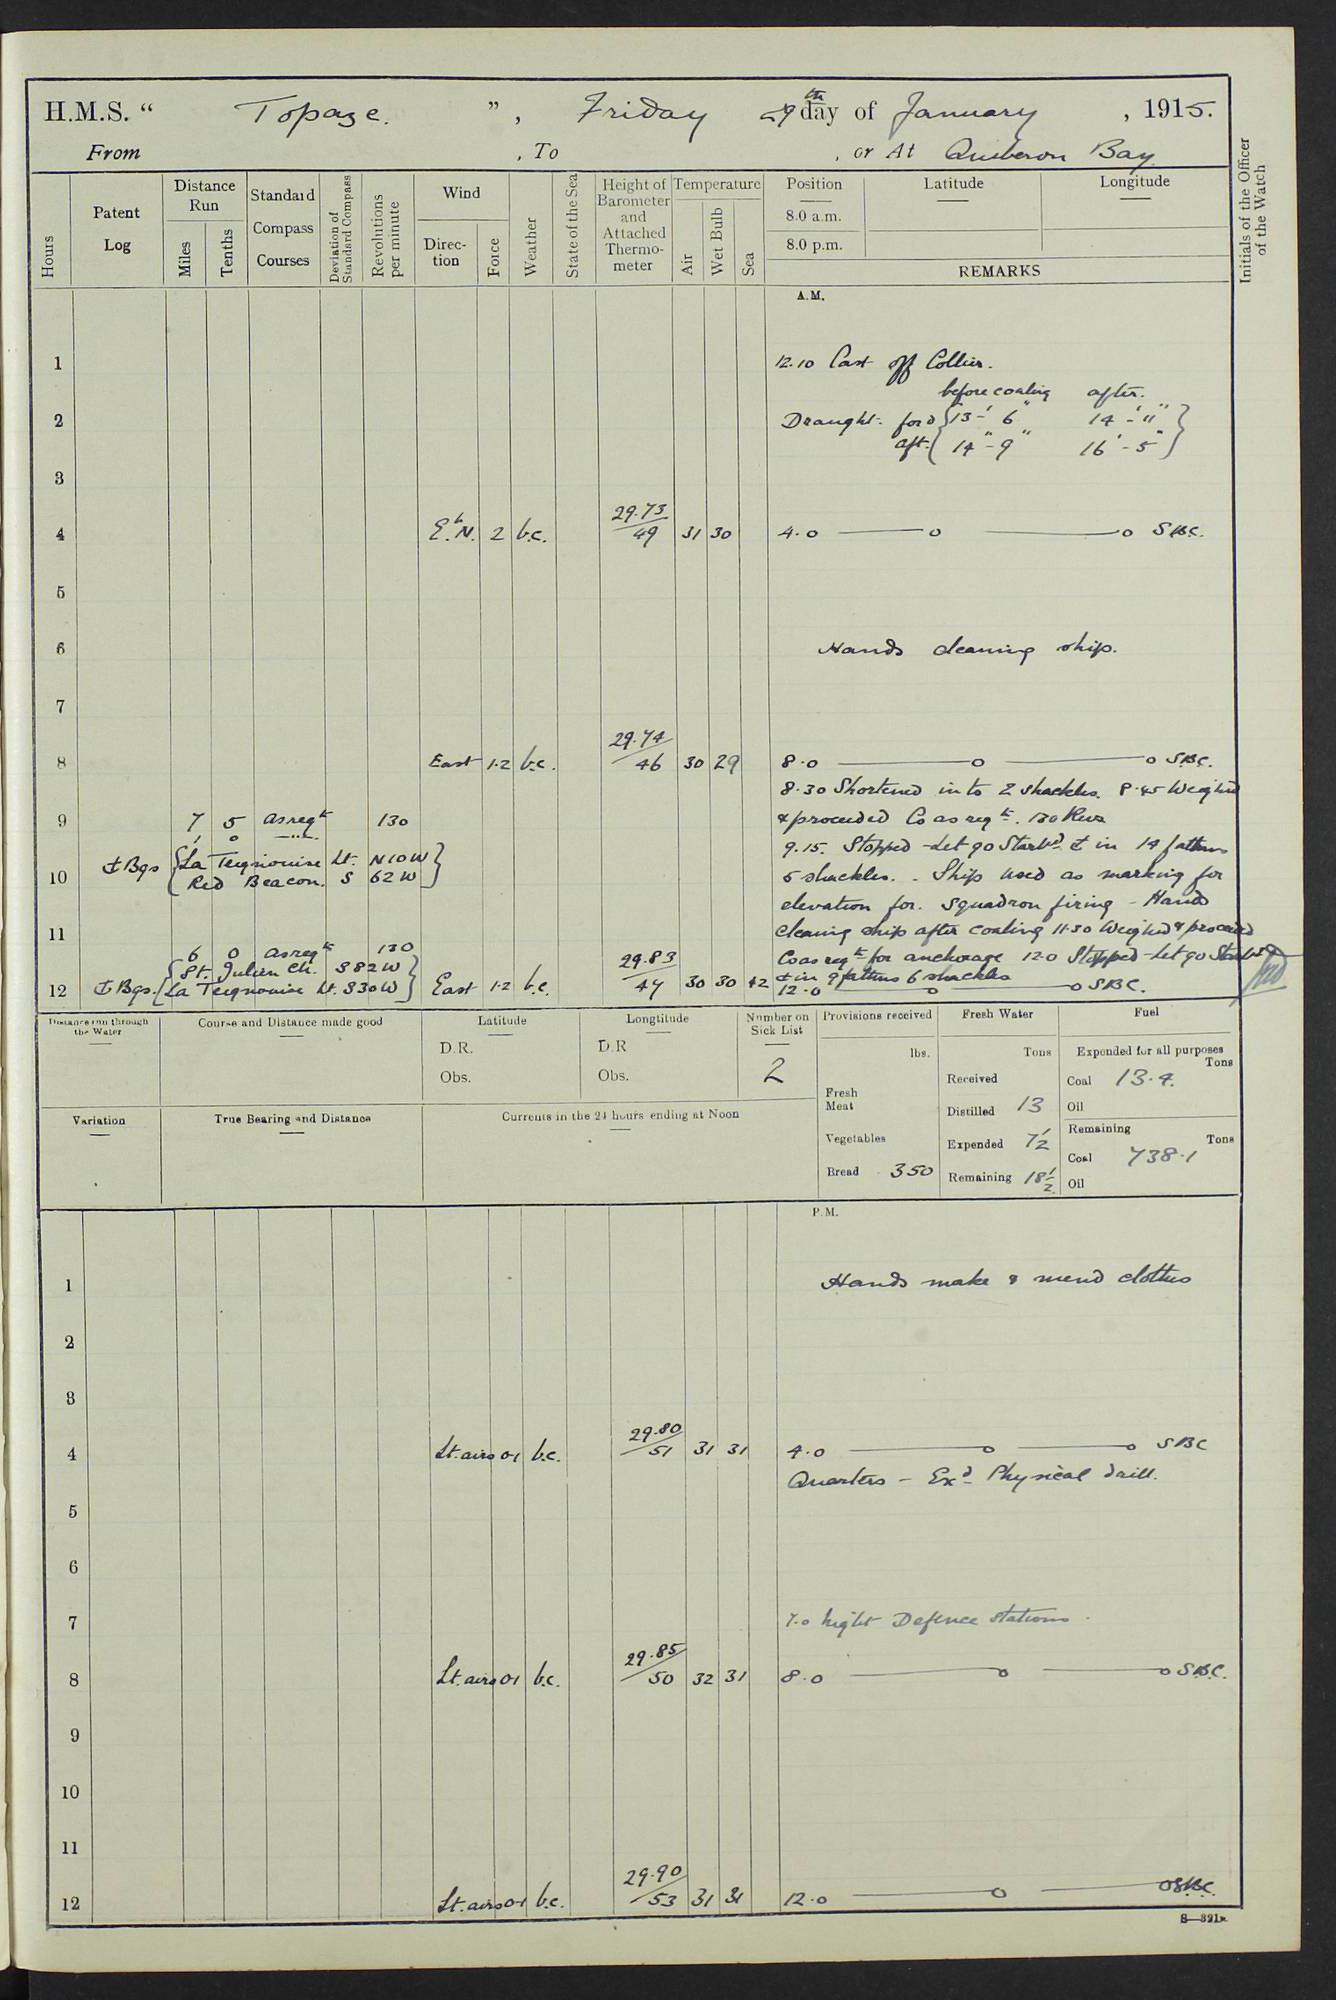 H.M.S. “ Topaze. ”, Friday 29th day of January, 1915.
From , To , or At Quiberon Bay
Hours
Patent Log
Distance Run
Miles
Tenths
Standard Compass Courses
Deviation of Standard Compass
Revolutions per minute
Wind
Direction
Force
Weather
State of the Sea
Height of Barometer and Attached Thermometer
Temperature
Air
Wet Bulb
Sea
Position
8.0 a.m.
8.0 p.m.
Latitude
Longitude
REMARKS
Initials of the Officer of the Watch
A.M.
1 12.10 Cast off Collier.
before coaling after.
2 Draught. ford { 13-'6" 14'-11" }
aft. { 14"-9" 16'-5" }
3
29.73
4 E.bN. 2 b.c. 49 31 30 4.0 S.B.C.
5
6 Hands cleaning ship.
7
29.74
8 East 1.2 b.c. 46 30 29 8.0 S.B.C.
8.30 Shortened in to 2 shackles. 8.45 Weighed
9 7 5 as reqte 130 & proceeded Co as reqte. 130 Revs
1 0 —"—
9.15. Stopped - Let go Starbd ⚓ in 14 fathms
⚓ Bgs { La Teignouise Lt. N10W }
10 { Red Beacon. S 62 W } 5 shackles. - Ship used as marking for
elevation for. Squadron firing - Hands
11 cleaning ship after coaling 11.30 Weighed & proceeded
6 0 as reqte 130 29.83 Co as reqte for anchorage 12.0 Stopped - let go Starbd
{ St. Julien Ch. S82W } ⚓ in 9 fathms 6 shackles
12 ⚓ Bgs. { La Teignouise Lt. S30W } East 1.2 b.c. 47 30 30 42 12.0 S.B.C.
Distance run through the Water
Course and Distance made good
Latitude
D.R.
Obs.
Longtitude
D.R
Obs.
Number on Sick List
2
Provisions received
lbs.
Fresh Meat
Vegetables
Bread 350
Fresh Water
Tons
Received
Distilled 13
Expended 7½
Remaining 18½
Fuel
Expended for all purposes
Tons
Coal 13.4.
Oil
Remaining
Tons
Coal 738.1
Oil
Variation
True Bearing and Distance
Currents in the 24 hours ending at Noon
P.M.
1 Hands make & mend clothes
2
3
29.80
4 Lt. airs 0.1 b.c. 51 31 31 4.0 S.B.C
Quarters - Exd Physical drill.
5
6
7 7.0 Night Defence Stations.
29.85
8 Lt. airs 0.1 b.c. 50 32 31 8.0 S.B.C.
9
10
11
29.90
12 Lt. airs 0.1 b.c. 53 31 31 12.0 S.B.C.